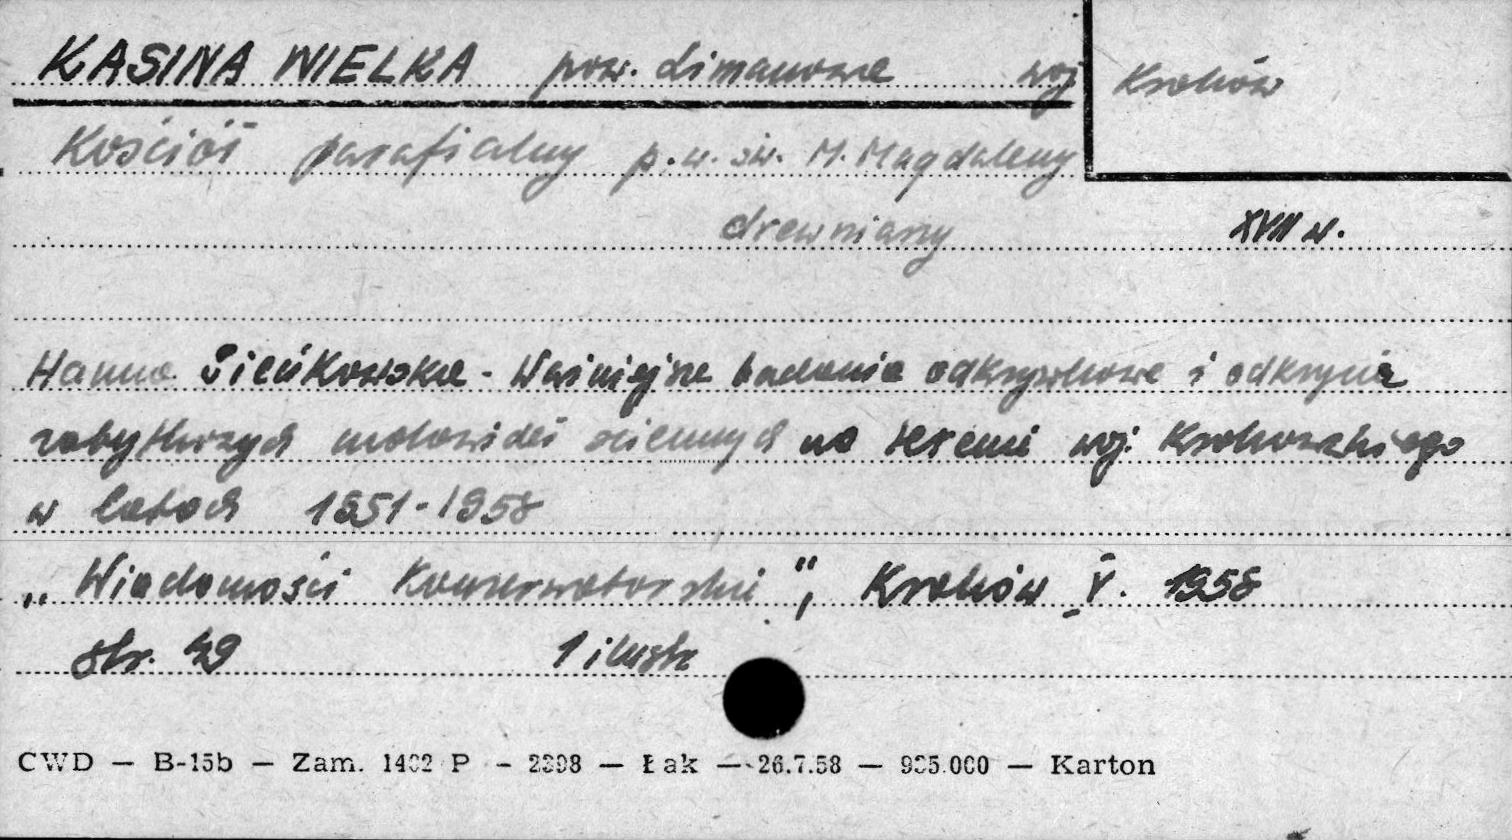 KASINA WIELKA pow. Limanowa woj Kraków
Kościół parafialny p.w. św. M. Magdaleny
drewniany XVII w.
Hanna Pieńkowska - Ważniejsze badania odkrywkowe i odkrycia
zabytkowych malowideł ściennych na terenie woj. Krakowskiego
w latach 1951-1958
„Wiadomości Konserwatorskie", Kraków V. 1958
str. 49 1 ilustr
CWD — B-15b — Zam. 1402 P - 2398 — Łak — 26.7.58 — 935.000 — Karton